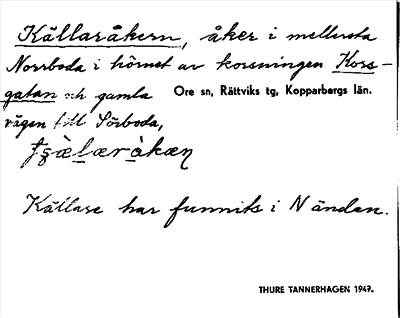 Källaråkern, åker i mellersta
Norrboda i hörnet av korsningen Kors-
gatan och gamla Ore sn, Rättviks tg, Kopparbergs län.
vägen till Sörboda,
Källare har funnits i N ändan.
THURE TANNERHAGEN 1947.